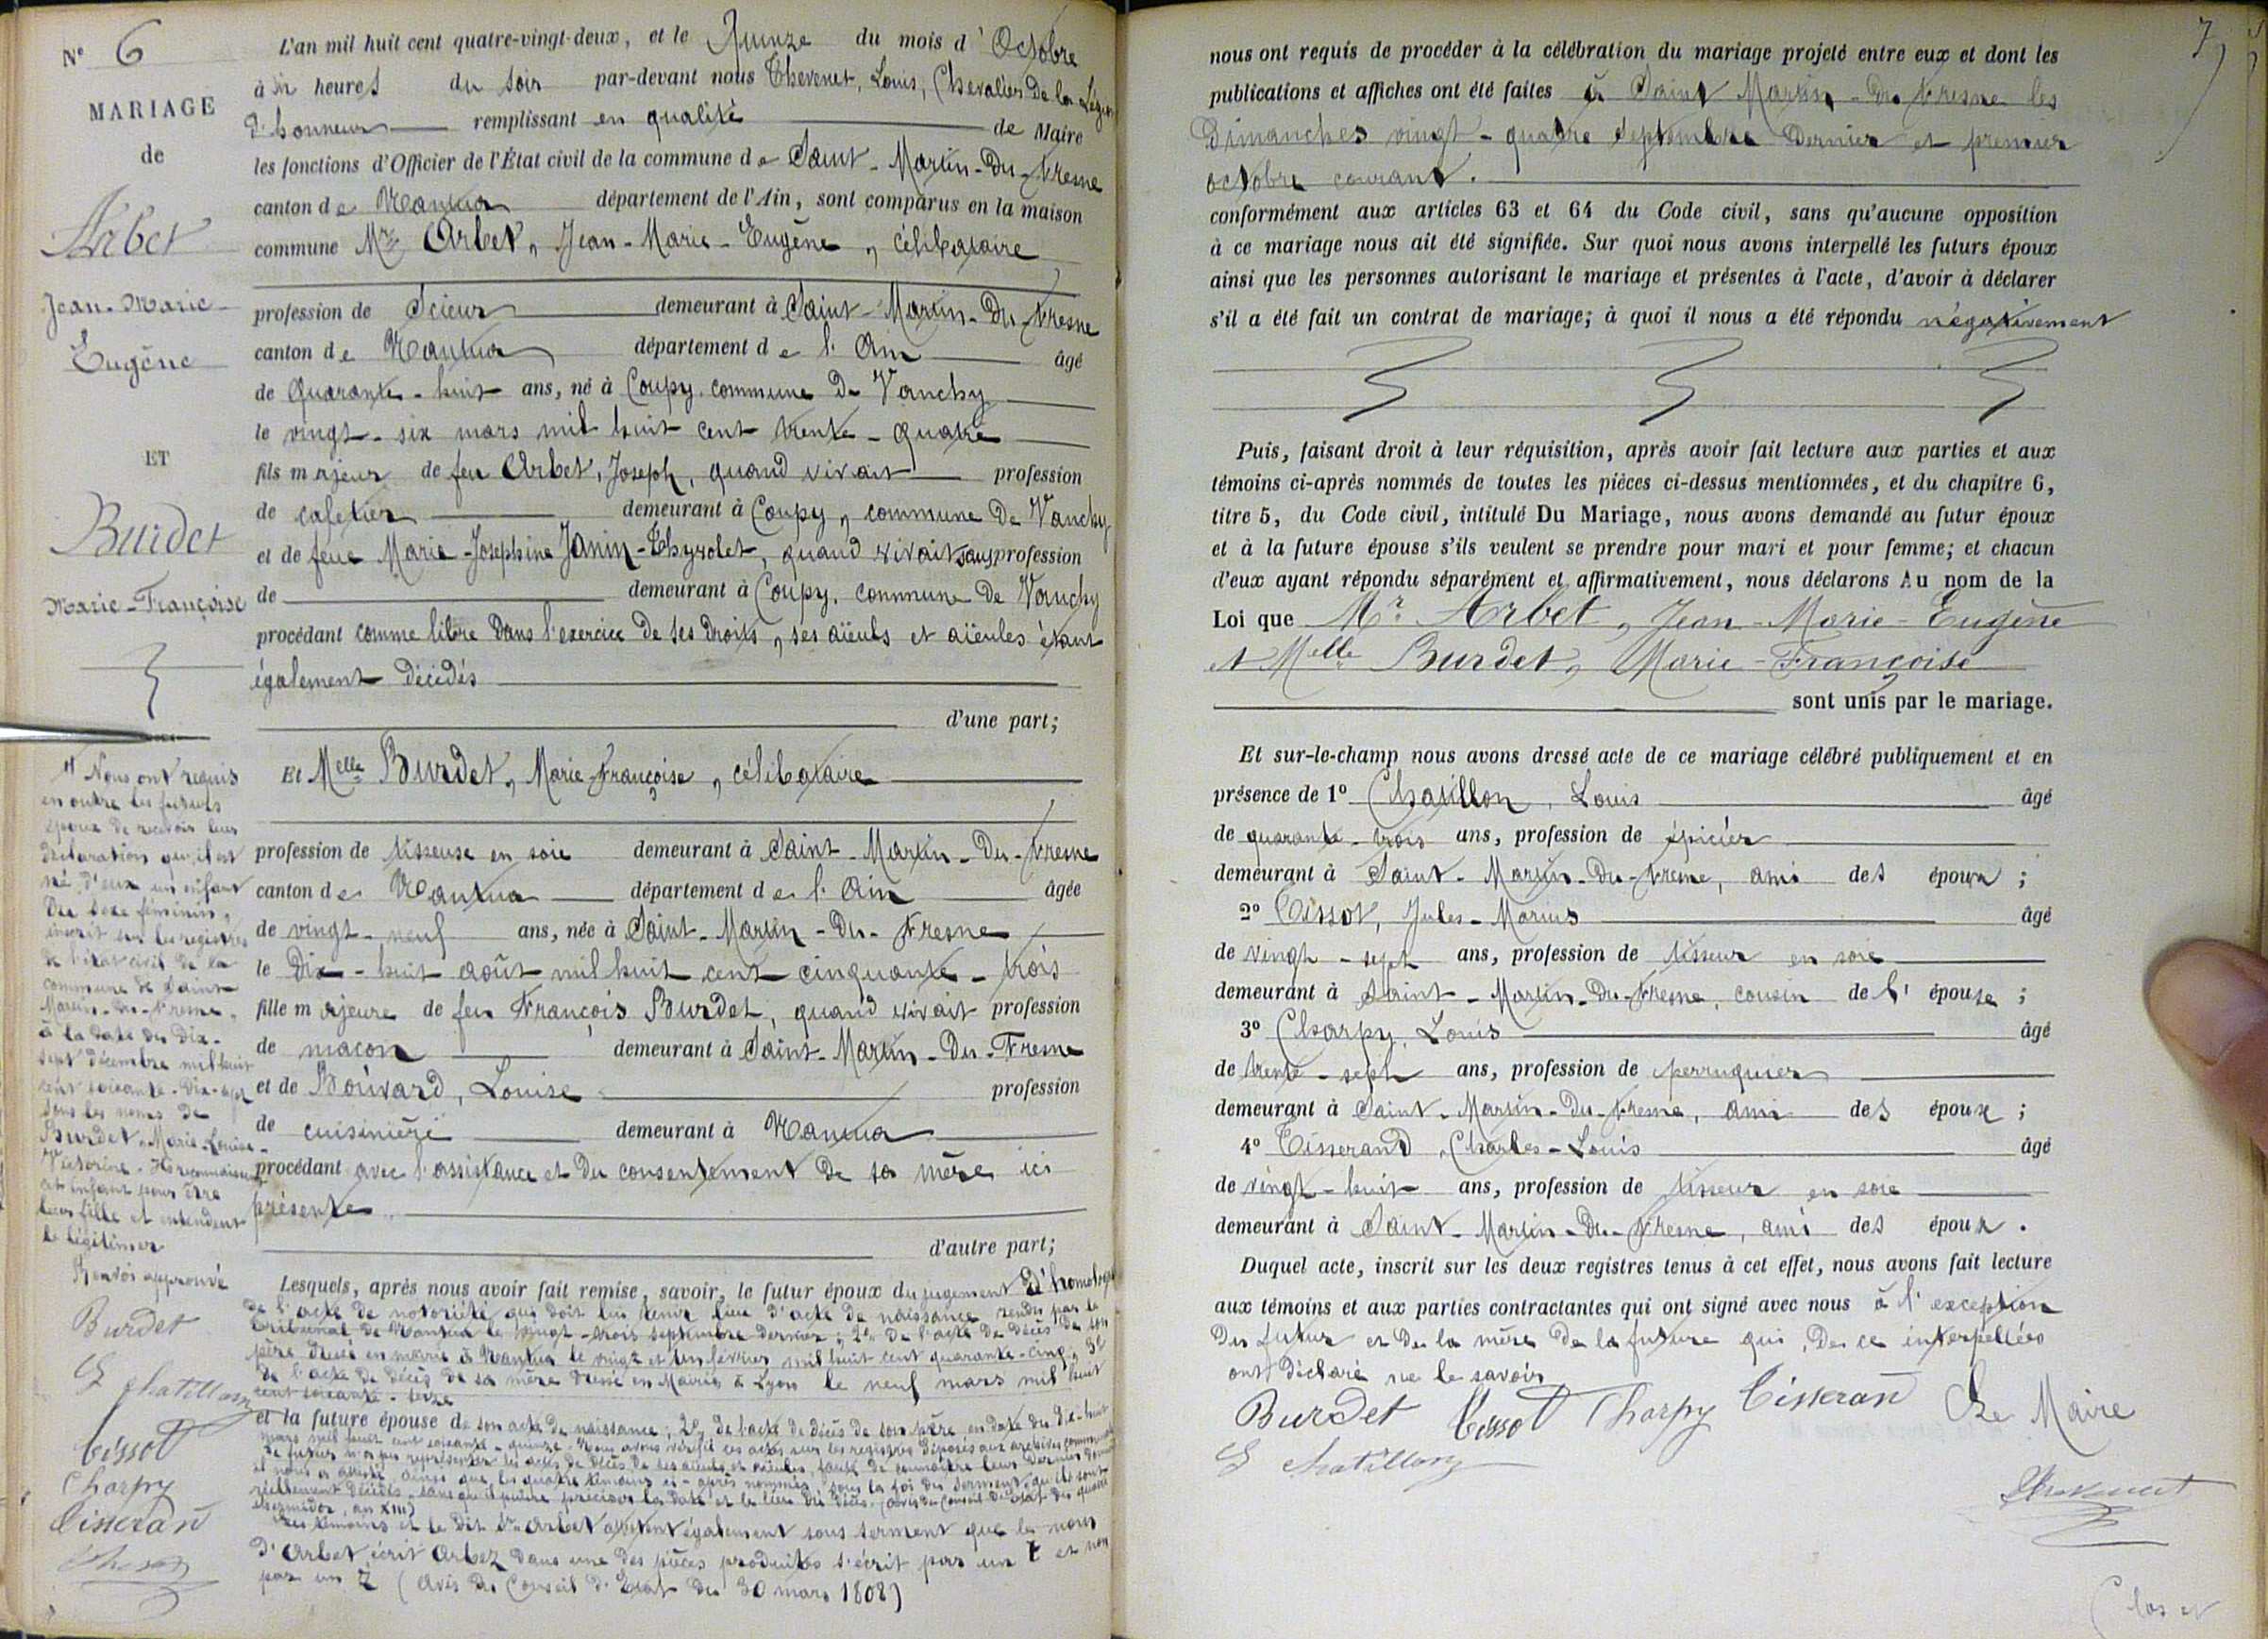 N° 6
MARIAGE
de
Arbet
Jean-Marie-
Eugène
ET
Burdet
Marie-Françoise
L'an mil huit cent quatre-vingt-deux, et le Quinze du mois d'Octobre
à six heures du soir par-devant nous Thevenet, Louis, Chevalier de la Légion
d'honneur remplissant en qualité de Maire
les fonctions d'Officier de l'État civil de la commune de Saint-Martin-du-Fresne
canton de Nantua département de l'Ain, sont comparus en la maison
commune Mr Arbet, Jean-Marie-Eugène, célibataire
profession de Scieur demeurant à Saint-Martin-du-Fresne
canton de Nantua département de l'Ain âgé
de Quarante-huit ans, né à Coupy, commune de Vanchy
le vingt-six mars mil huit cent trente-quatre
fils majeur de feu Arbet, Joseph, quand vivait profession
de cafetier demeurant à Coupy, commune de Vanchy
et de feue Marie-Josephine Janin-Thyvolet, quand vivait sans profession
de demeurant à Coupy, commune de Vanchy
procédant comme libre dans l'exercice de ses droits, ses aïeuls et aïeules étant
également décédés
d'une part;
Et Melle Burdet, Marie Françoise, célibataire
profession de tisseuse en soie demeurant à Saint-Martin-du-Fresne
canton de Nantua département de l'Ain âgée
de vingt-neuf ans, née à Saint-Martin-du-Fresne
le dix-huit août mil huit cent cinquante-trois
fille majeure de feu François Burdet, quand vivait profession
de maçon demeurant à Saint-Martin-du-Fresne
et de Bouvard, Louise profession
de cuisinière demeurant à Nantua
procédant avec l'assistance et du consentement de sa mère ici
présente
d'autre part;
Nous ont requis
en outre les futurs
époux de recevoir leur
déclaration qu'il est
né d'eux un enfant
du sexe féminin,
inscrit sur les registres
de l'état civil de la
commune de Saint-
Martin-du-Fresne,
à la date du dix-
sept décembre mil huit
cent soixante-dix-sept
sous les noms de
Burdet, Marie-Louise-
Victorine. Ils reconnaissent
cet enfant pour être
leur fille et entendent
la légitimer
Renvoi approuvé
Burdet
Chatillon
Tissot
Charpy
Tisseran
Lesquels, après nous avoir fait remise, savoir, le futur époux du jugement d'homologat
de l'acte de notoriété qui doit lui tenir lieu d'acte de naissance rendu par le
tribunal de Nantua le vingt-trois septembre dernier; 2° de l'acte de décès de son
père dressé en mairie à Nantua le vingt et un février mil huit cent quarante-cinq, 3°
de l'acte de décès de sa mère dressé en Mairie à Lyon le neuf mars mil huit
cent soixante-seize
et la future épouse de son acte de naissance; 2° de l'acte de décès de son père, en date du dix-huit
mars mil huit cent soixante-quinze. Nous avons vérifié ces actes sur les registres déposés aux archives communales
Le futur n'a pu représenter les actes de décès de ses aïeuls et aïeules, faute de connaître leur dernier domicile
il nous a attesté, ainsi que les quatre témoins ci-après nommés, sous la foi du serment, qu'ils sont
réellement décédés, sans qu'il puisse préciser la date et le lieu du décès. (avis du Conseil d'état du quatre
thermidor, an XIII)
Les témoins et le dit Sr Arbet attestent également sous serment que le nom
d'Arbet écrit Arbez dans une des pièces produites s'écrit par un t et non
par un Z (avis du Conseil d'Etat du 30 mars 1808)
7
nous ont requis de procéder à la célébration du mariage projeté entre eux et dont les
publications et affiches ont été faites à Saint Martin-du-Fresne les
dimanches vingt-quatre septembre dernier et premier
octobre courant.
conformément aux articles 63 et 64 du Code civil, sans qu'aucune opposition
à ce mariage nous ait été signifiée. Sur quoi nous avons interpellé les futurs époux
ainsi que les personnes autorisant le mariage et présentes à l'acte, d'avoir à déclarer
s'il a été fait un contrat de mariage; à quoi il nous a été répondu négativement
Puis, faisant droit à leur réquisition, après avoir fait lecture aux parties et aux
témoins ci-après nommés de toutes les pièces ci-dessus mentionnées, et du chapitre 6,
titre 5, du Code civil, intitulé Du Mariage, nous avons demandé au futur époux
et à la future épouse s'ils veulent se prendre pour mari et pour femme; et chacun
d'eux ayant répondu séparément et affirmativement, nous déclarons Au nom de la
Loi que Mr Arbet, Jean-Marie-Eugène
et Melle Burdet, Marie-Françoise
sont unis par le mariage.
Et sur-le-champ nous avons dressé acte de ce mariage célébré publiquement et en
présence de 1° Chatillon, Louis âgé
de quarante-trois ans, profession de épicier
demeurant à Saint-Martin-du-Fresne, ami des époux;
2° Tissot, Jules-Marius âgé
de vingt-sept ans, profession de tisseur en soie
demeurant à Saint-Martin-du-Fresne, cousin de l'épouse;
3° Charpy, Louis âgé
de trente-sept ans, profession de perruquier
demeurant à Saint-Martin-du-Fresne, ami des époux;
4° Tisserand, Charles-Louis âgé
de vingt-huit ans, profession de tisseur en soie
demeurant à Saint-Martin-du-Fresne, ami des époux.
Duquel acte, inscrit sur les deux registres tenus à cet effet, nous avons fait lecture
aux témoins et aux parties contractantes qui ont signé avec nous à l'exception
du futur et de la mère de la future qui, de ce interpellés
ont déclaré ne le savoir
Burdet Tissot Charpy Tisseran Le Maire
Chatillon Thevenet
Clos et